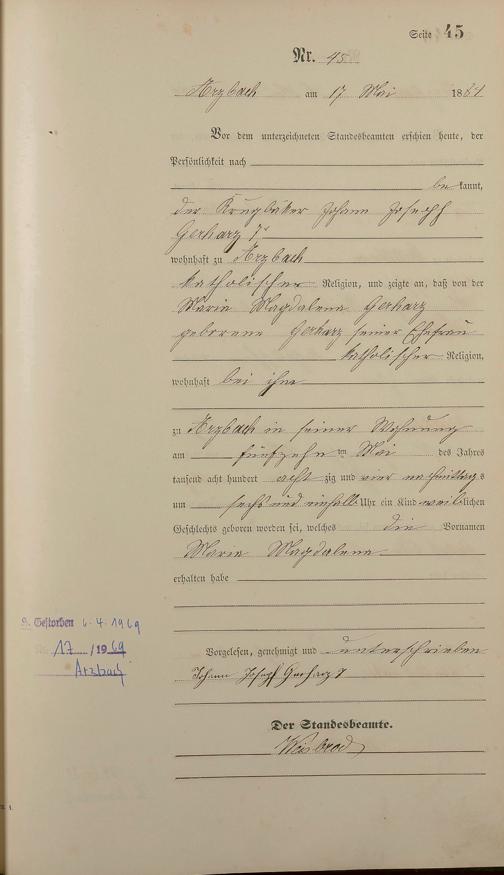 Seite 45
Nr. 45
Arzbach am 17 Mai 1884
Vor dem unterzeichneten Standesbeamten erschien heute, der
Persönlichkeit nach
bekannt,
der Krugbäker Johann Joseph
Gerharz 7r
wohnhaft zu Arzbach
katholischer Religion, und zeigte an, daß von der
Maria Magdalena Gerharz
geborene Gerharz seiner Ehefrau
katholischer Religion,
wohnhaft bei ihm
zu Arzbach in seiner Wohnung
am fünfzehn ten Mai des Jahres
tausend acht hundert achtzig und vier nachmittags
um sechs und einhalb Uhr ein Kind weiblichen
Geschlechts geboren worden sei, welches die Vornamen
Maria Magdalena
erhalten habe
Vorgelesen, genehmigt und unterschrieben
Johann Joseph Gerharz 7
Der Standesbeamte.
Weisbrod
Gestorben 6.4.1969
17/1969
Arzbach